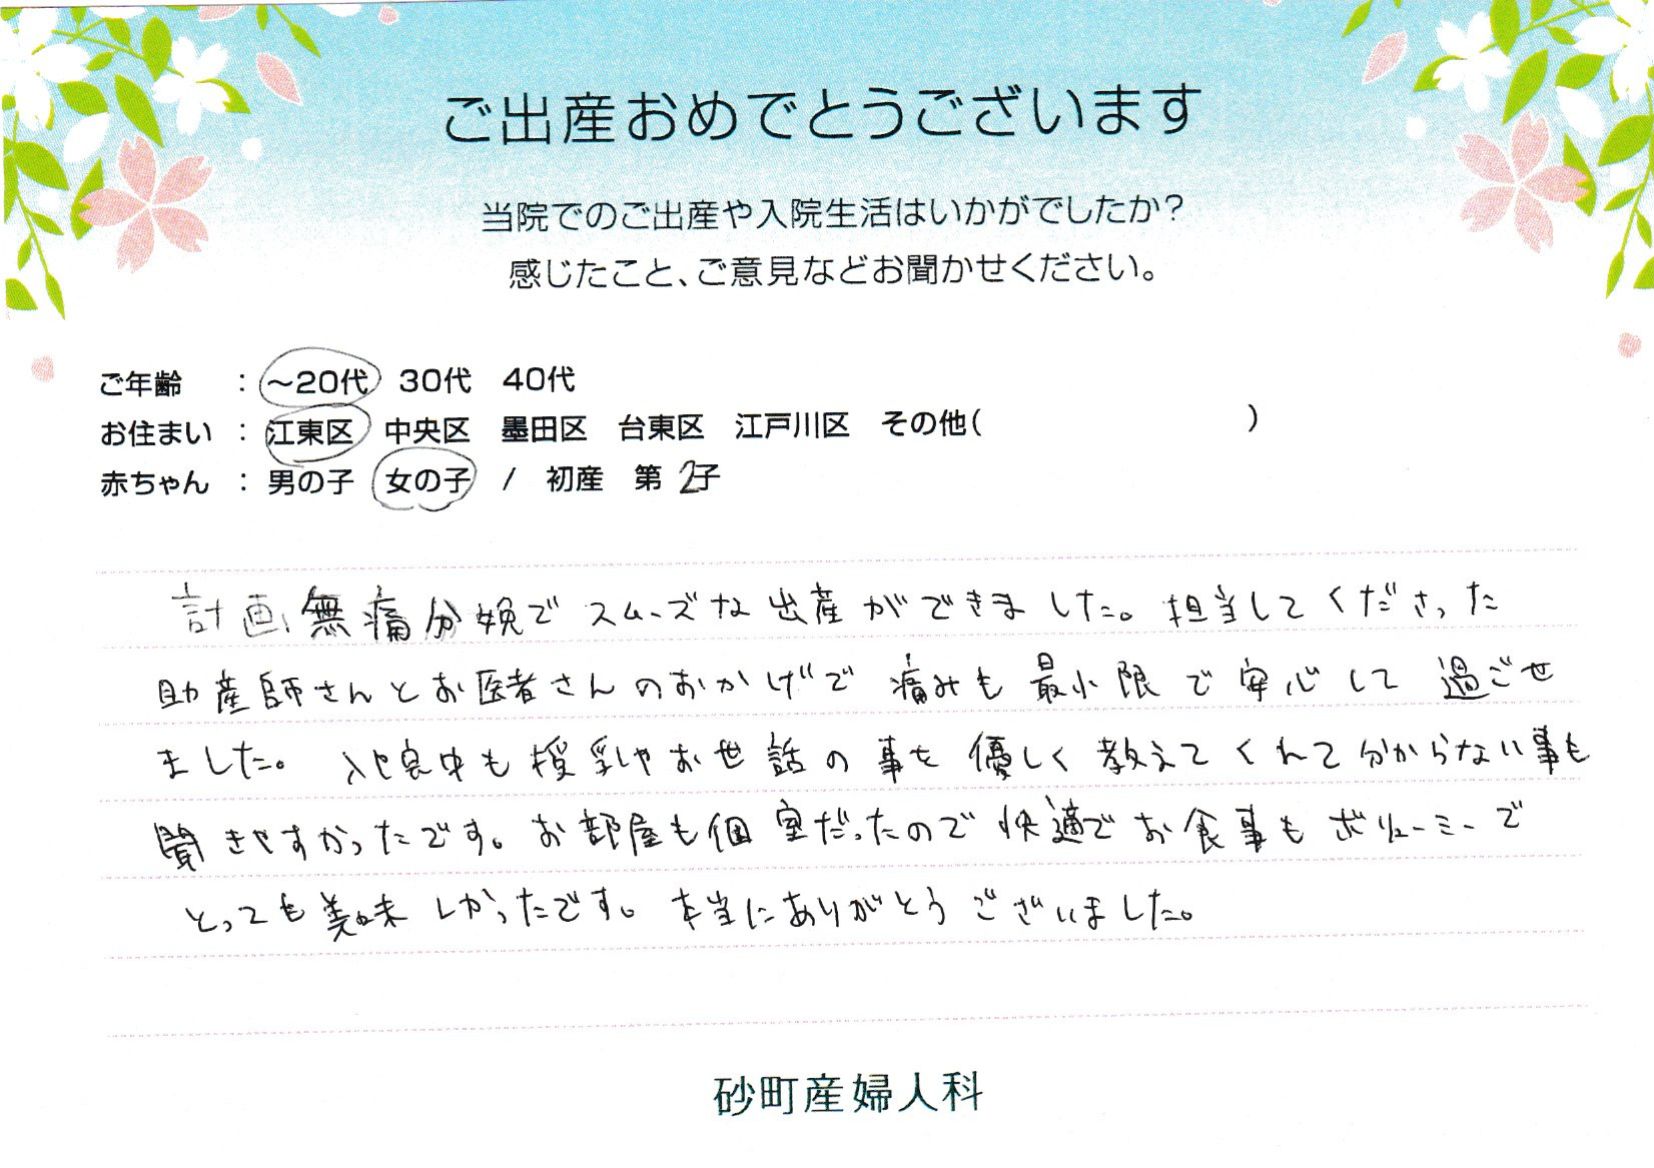 ご出産おめでとうございます
当院でのご出産や入院生活はいかがでしたか?
感じたこと、ご意見などお聞かせください。
ご年齢 : ~20代 30代 40代
お住まい : 江東区 中央区 墨田区 台東区 江戸川区 その他( )
赤ちゃん : 男の子 女の子 / 初産 第2子
計画無痛分娩でスムーズな出産ができました。担当してくださった
助産師さんとお医者さんのおかげで痛みも最小限で安心して過ごせ
ました。入院中も授乳やお世話の事を優しく教えてくれて分からない事も
聞きやすかったです。お部屋も個室だったので快適でお食事もボリューミーで
とっても美味しかったです。本当にありがとうございました。
砂町産婦人科